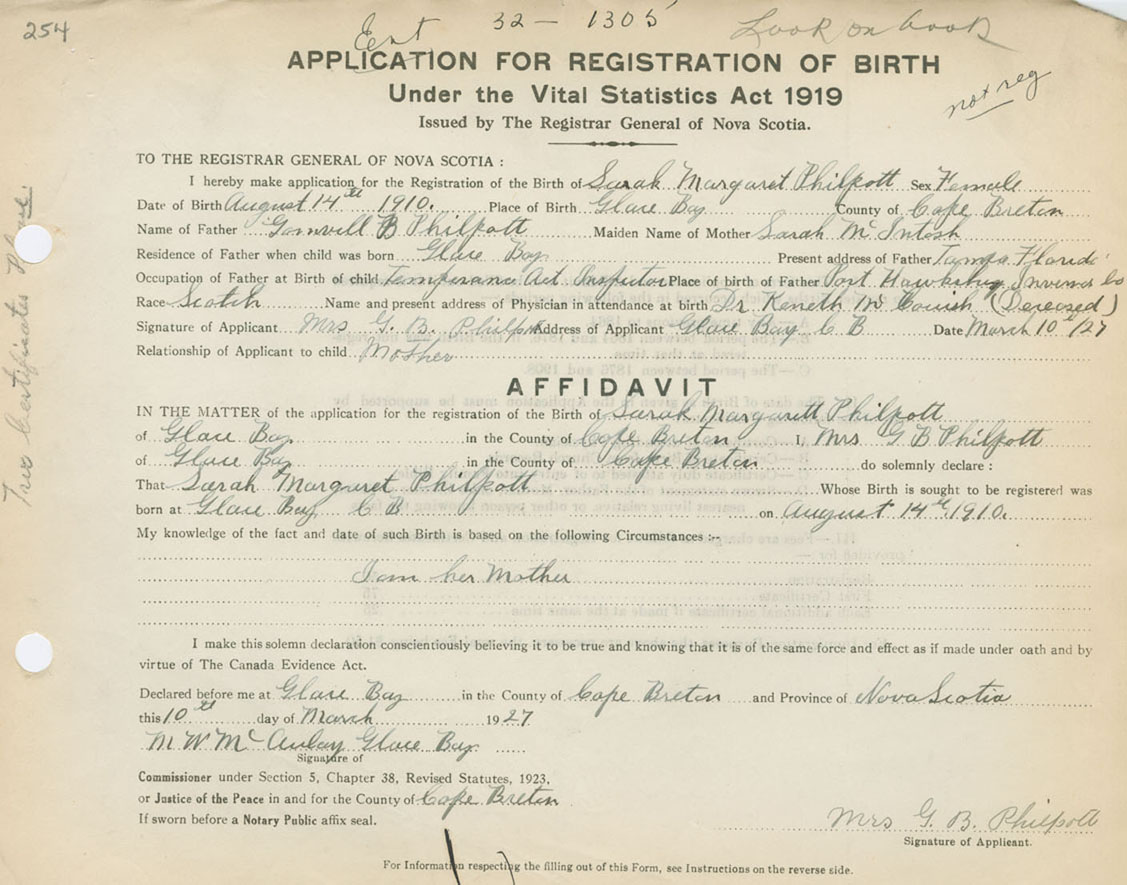 254
32 - 1305
Ent
Look on book
not reg
APPLICATION FOR REGISTRATION OF BIRTH
Under the Vital Statistics Act 1919
Issued by The Registrar General of Nova Scotia.
TO THE REGISTRAR GENERAL OF NOVA SCOTIA :
I hereby make application for the Registration of the Birth of Sarah Margaret Philpott Sex Female
Date of Birth August 14th 1910. Place of Birth Glace Bay County of Cape Breton
Name of Father Gomvill B Philpott Maiden Name of Mother Sarah McIntosh
Residence of Father when child was born Glace Bay Present address of Father Tampa Florida
Occupation of Father at Birth of child Temperance Act Inspector Place of birth of Father Port Hawksbury Inverness Co
Race Scotch Name and present address of Physician in attendance at birth Dr Keneth (Deceased)
Signature of Applicant Mrs G. B. Philpott Address of Applicant Glace Bay C B Date March 10th/27
Relationship of Applicant to child Mother
AFFIDAVIT
IN THE MATTER of the application for the registration of the Birth of Sarah Margarett Philpott
of Glace Bay in the County of Cape Breton I, Mrs G B Philpott
of Glace Bay in the County of Cape Breton do solemnly declare :
That Sarah Margaret Philpott Whose Birth is sought to be registered was
born at Glace Bay C B on August 14th 1910.
My knowledge of the fact and date of such Birth is based on the following Circumstances :--
I am her Mother
I make this solemn declaration conscientiously believing it to be true and knowing that it is of the same force and effect as if made under oath and by
virtue of The Canada Evidence Act.
Declared before me at Glace Bay in the County of Cape Breton and Province of Nova Scotia
this 10th day of March 1927
M W McAulay Glace Bay
Signature of
Commissioner under Section 5, Chapter 38, Revised Statutes, 1923,
or Justice of the Peace in and for the County of Cape Breton
If sworn before a Notary Public affix seal.
Mrs G. B. Philpott
Signature of Applicant.
For Information respecting the filling out of this Form, see Instructions on the reverse side.
Two Certificates Please